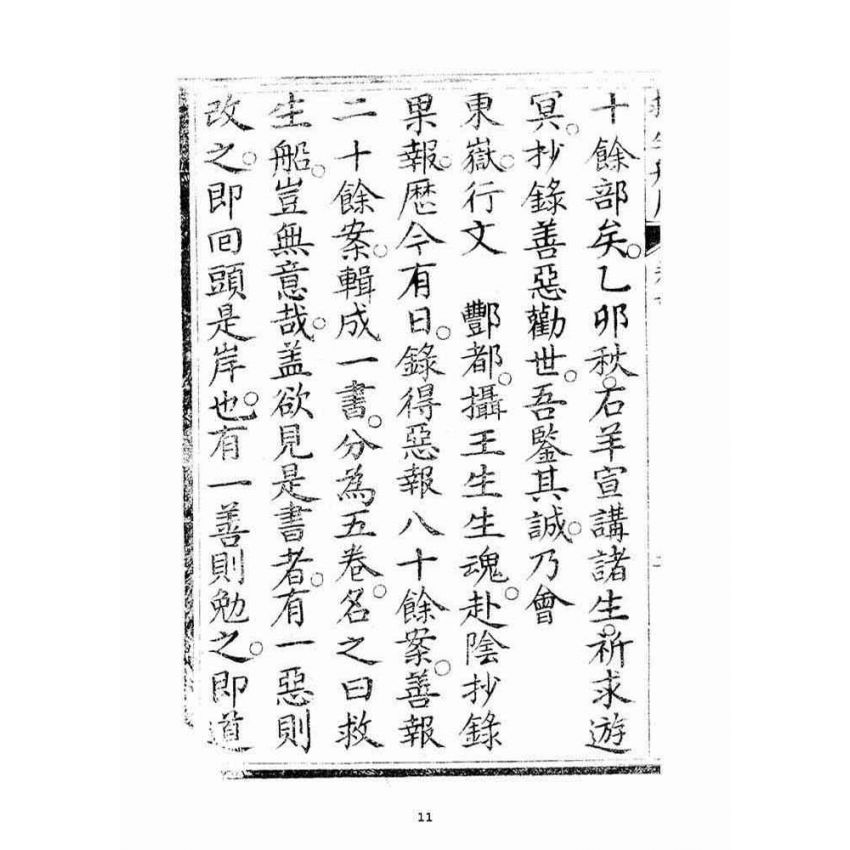 十餘部矣。乙卯秋。石羊宣講諸生。祈求遊
冥。抄錄善惡勸世。吾鑒其誠。乃會
東嶽。行文　酆都。攝王生生魂。赴陰抄錄
果報。歷今有日。錄得惡報八十餘案。善報
二十餘案。輯成一書。分為五卷。名之曰救
生船。豈無意哉。盖欲見是書者。有一惡則
改之。即囘頭是岸也。有一善則勉之。即道
11